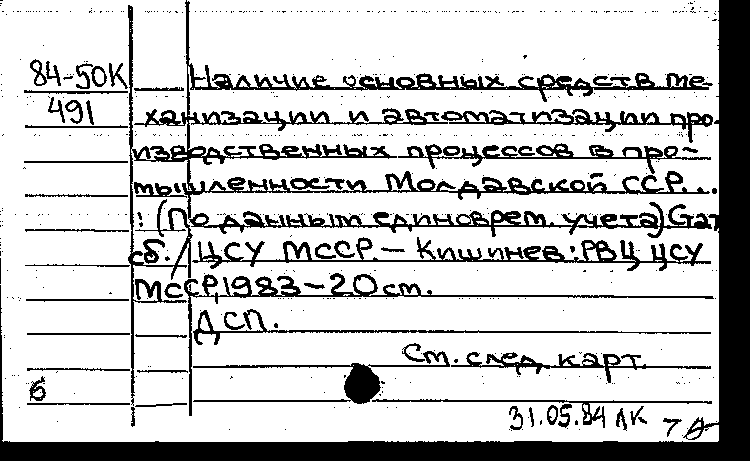 84-50К Наличие основных средств ме-
491 ханизации и автоматизации про-
изводственных процессов в про-
мышленности Молдавской ССР...
: (По данным единоврем. учета) Стат
сб. / ЦСУ МССР. — Кишинев: РВЦ ЦСУ
МССР, 1983 – 20 см.
ДСП.
См. след. карт.
б
31.05.84 ЛК